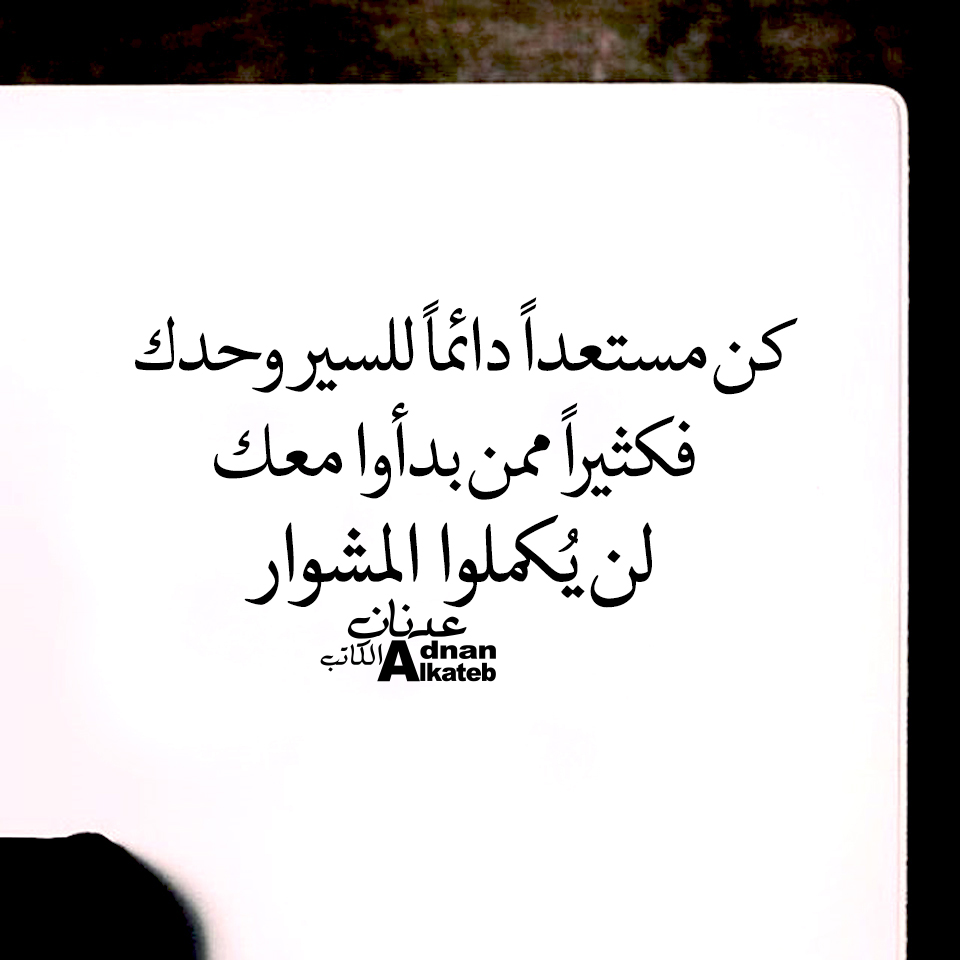 كن مستعداً دائماً للسير وحدك
فكثيراً ممن بدأوا معك
لن يُكملوا المشوار
عدنان
الكاتب
Adnan
Alkateb